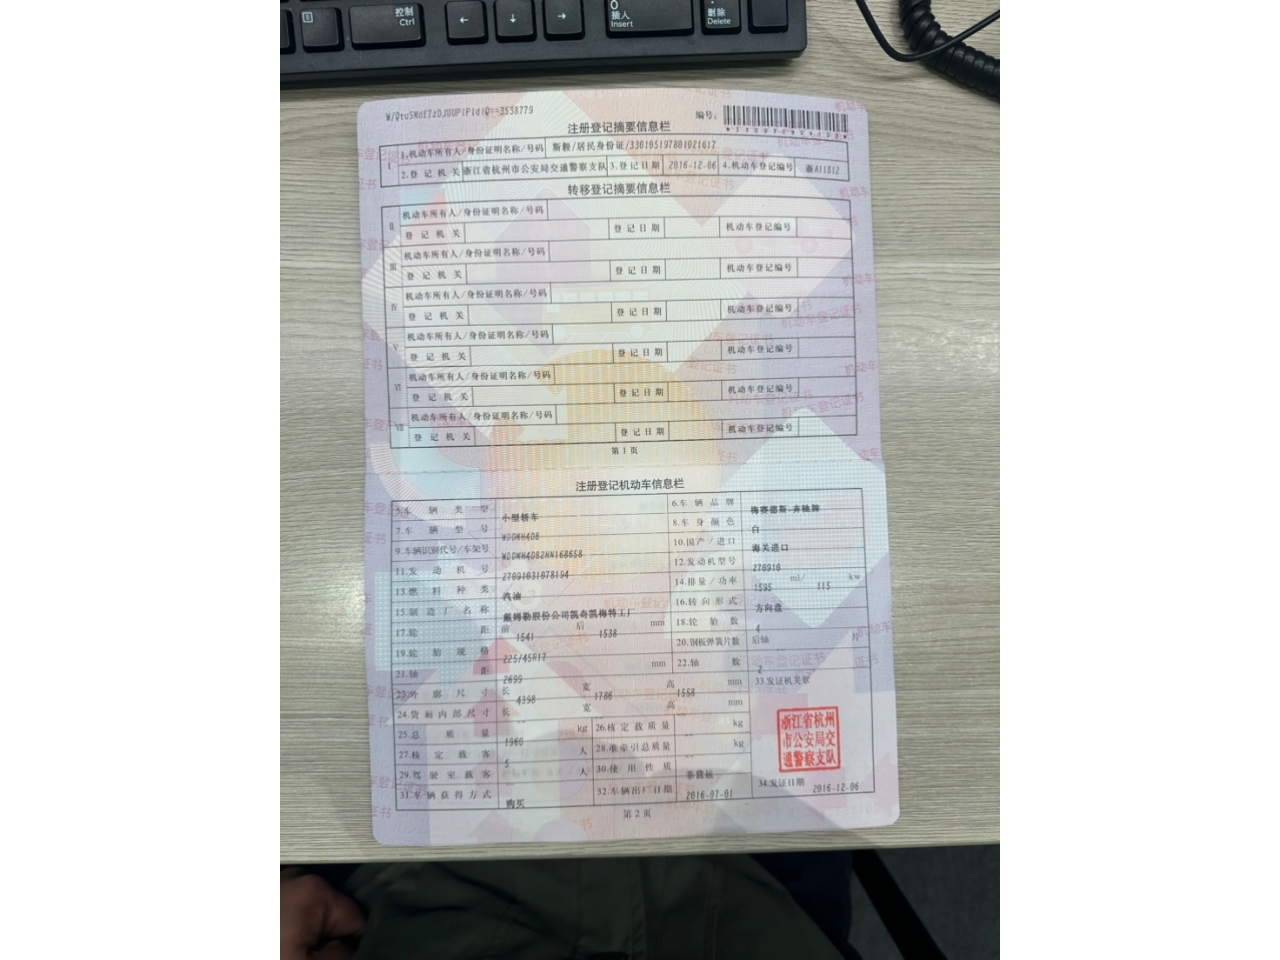 控制
Ctrl
←
↓
→
0
插入
Insert
删除
Delete
编号:
注册登记摘要信息栏
I 1.机动车所有人/身份证明名称/号码 斯毅/居民身份证/330105197801021617
2.登记机关 浙江省杭州市公安局交通警察支队 3.登记日期 2016-12-06 4.机动车登记编号 浙A11B12
转移登记摘要信息栏
II 机动车所有人/身份证明名称/号码
登记机关 登记日期 机动车登记编号
III 机动车所有人/身份证明名称/号码
登记机关 登记日期 机动车登记编号
IV 机动车所有人/身份证明名称/号码
登记机关 登记日期 机动车登记编号
V 机动车所有人/身份证明名称/号码
登记机关 登记日期 机动车登记编号
VI 机动车所有人/身份证明名称/号码
登记机关 登记日期 机动车登记编号
VII 机动车所有人/身份证明名称/号码
登记机关 登记日期 机动车登记编号
第 1 页
注册登记机动车信息栏
5.车辆类型 小型轿车 6.车辆品牌 梅赛德斯-奔驰牌
7.车辆型号 WDDMH4DB 8.车身颜色 白
9.车辆识别代号/车架号 WDDMH4DB2HN168658 10.国产/进口 海关进口
11.发动机号 27091031078194 12.发动机型号 270910
13.燃料种类 汽油 14.排量/功率 1595 ml/ 115 kw
15.制造厂名称 戴姆勒股份公司凯奇凯梅特工厂 16.转向形式 方向盘
17.轮距 前 1541 后 1538 mm 18.轮胎数 4
19.轮胎规格 225/45R17 20.钢板弹簧片数 后轴 片
21.轴距 2699 mm 22.轴数 2
23.外廓尺寸 长 4398 宽 1786 高 1558 mm 33.发证机关章
24.货厢内部尺寸 长 宽 高 mm
25.总质量 1960 kg 26.核定载质量 kg
27.核定载客 5 人 28.准牵引总质量 kg
29.驾驶室载客 人 30.使用性质 非营运
31.车辆获得方式 购买 32.车辆出厂日期 2016-07-01 34.发证日期 2016-12-06
浙江省杭州
市公安局交
通警察支队
第 2 页